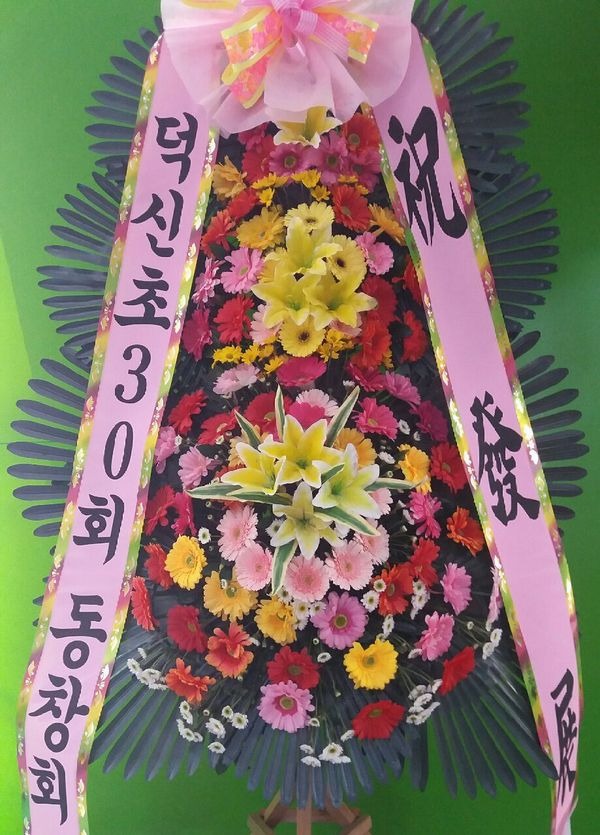 덕신초30회 동창회
祝 發展